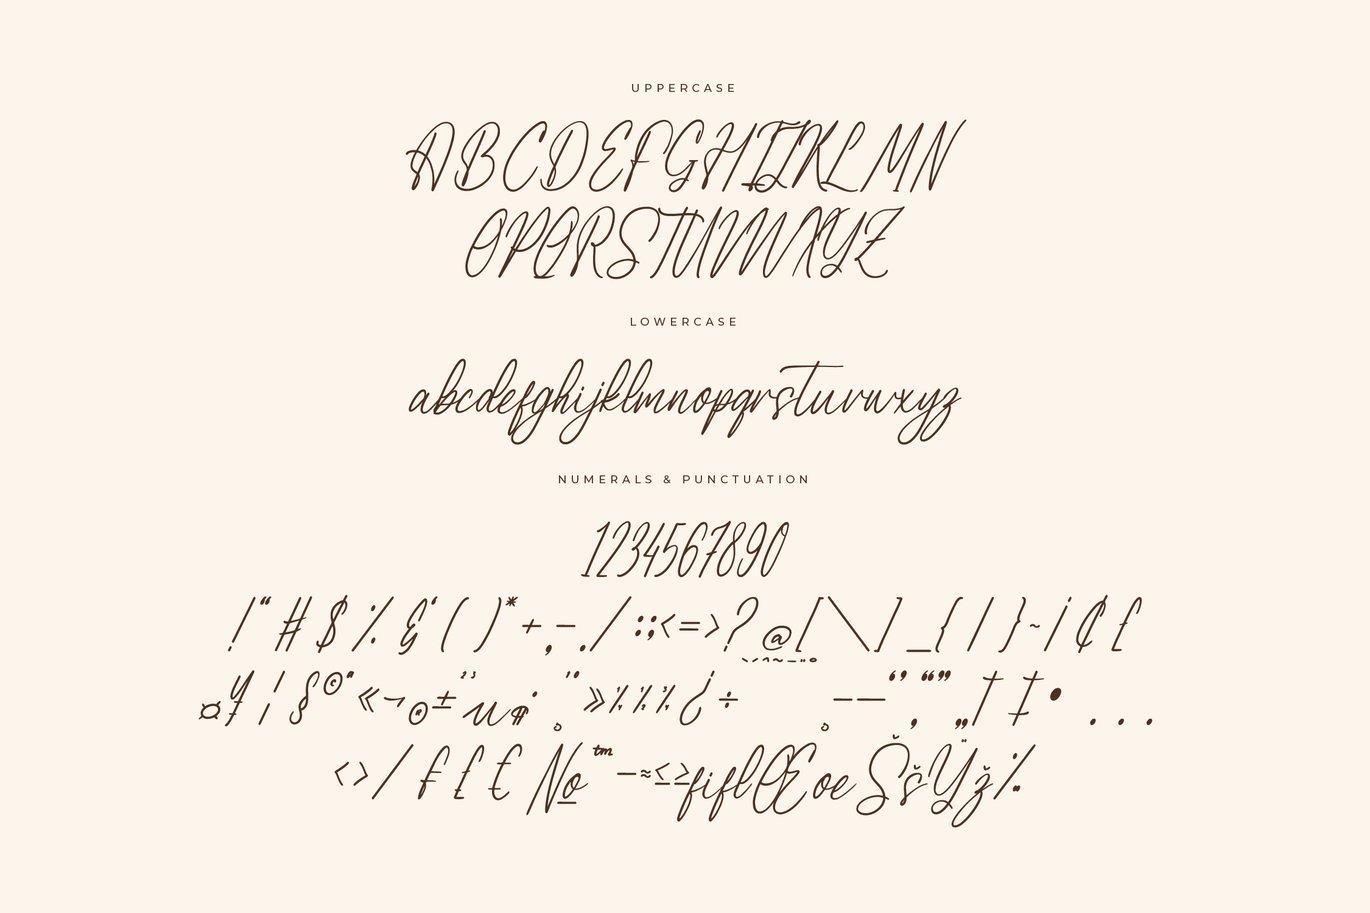 UPPERCASE
ABCDEFGHIJKLMN
OPQRSTUVWXYZ
LOWERCASE
abcdefghijklmnopqrstuvwxyz
NUMERALS & PUNCTUATION
1234567890
!“#$%&‘()*+,-./:;<=>?@[\]_{|}~¡¢£
¤¥¦§©ª«¬®±²³µ¶·¸¹º»¼½¾¿÷ ——‘’‚“”„†‡•...
‹›/₣₤€№™−≈≤≥fiflŒœŠšŸž‰